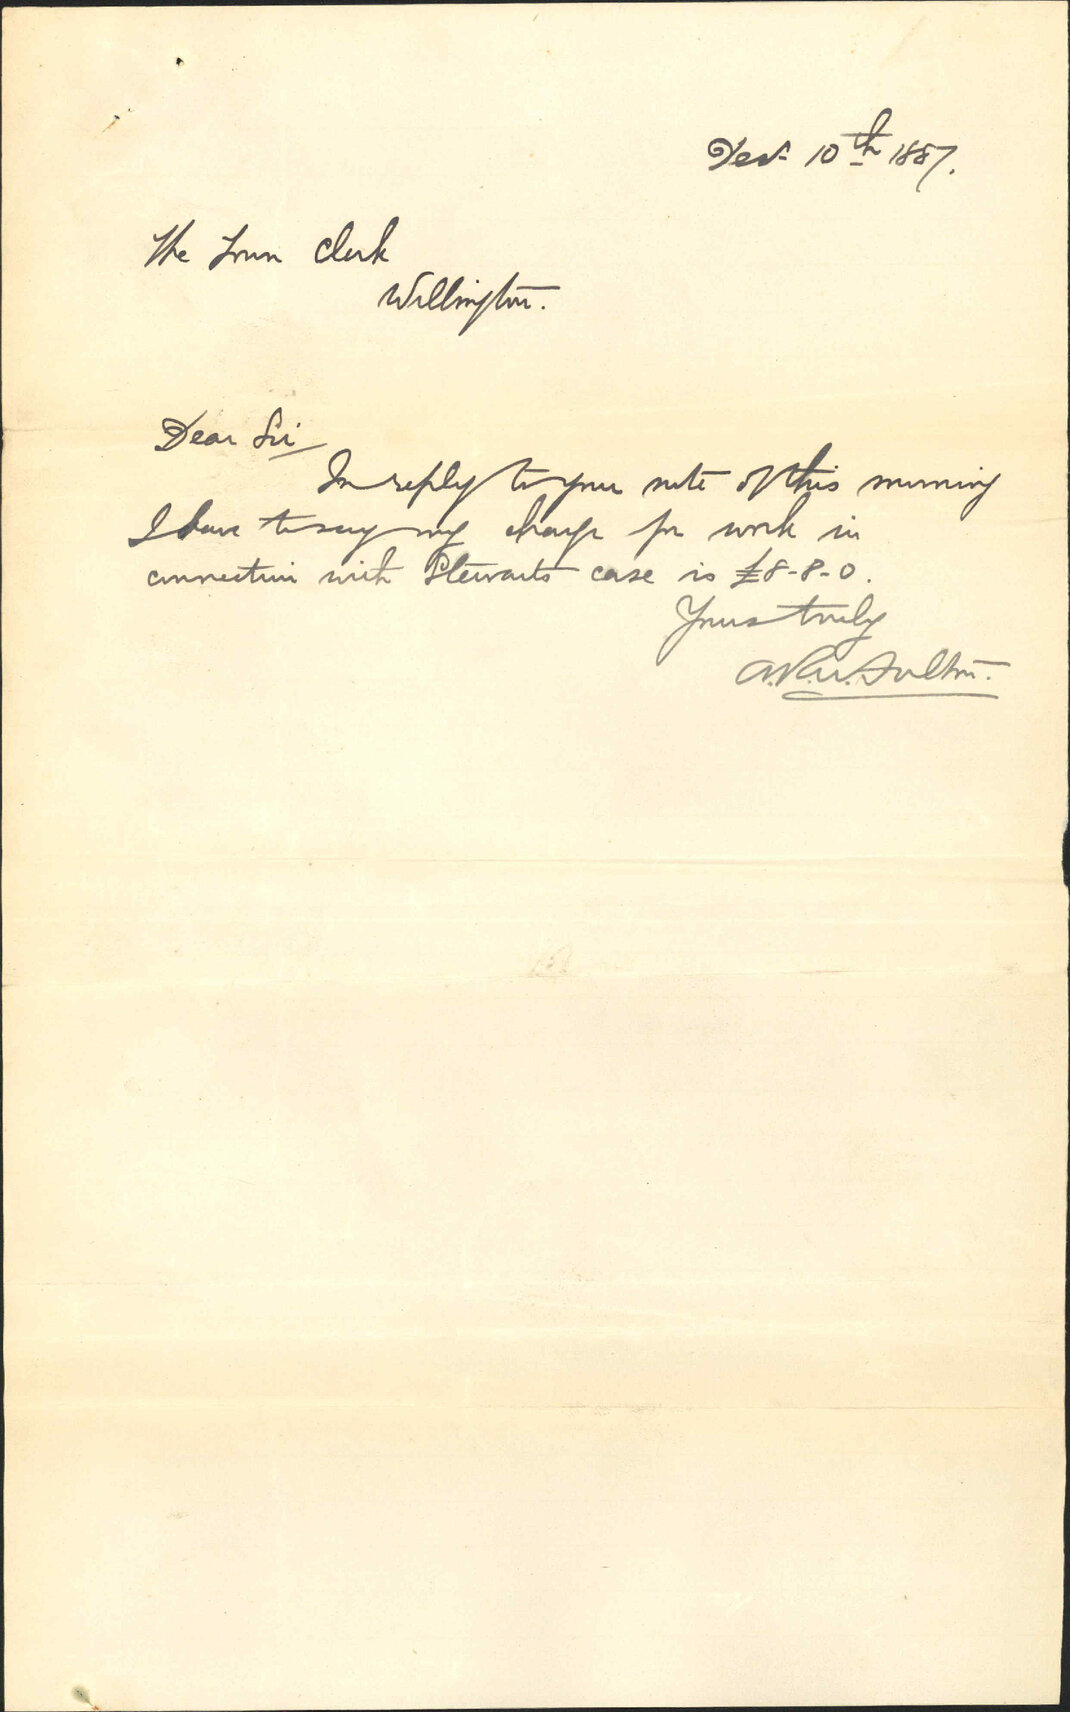 Dec 10th 1887.
The Town Clerk
Wellington.
Dear Sir
In reply to your note of this morning
I have to say my charge for work in
connection with Stewarts case is £8-8-0.
Yours truly
Fulton.